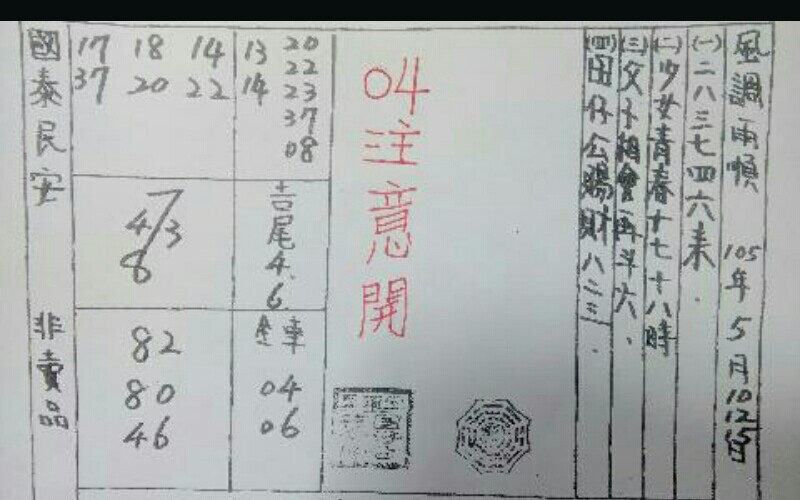 風調雨順 105年5月10 12 15日
(一)二八三七四六來.
(二)少女青春十七十八時
(三)父子相會再斗六.
(四)田仔公賜財八三三.
04注意開
13 20
14 22
23
37
08
吉尾4.6
全車
04
06
17 18 14
37 20 22
7
4/3
8
82
80
46
國泰民安 非賣品